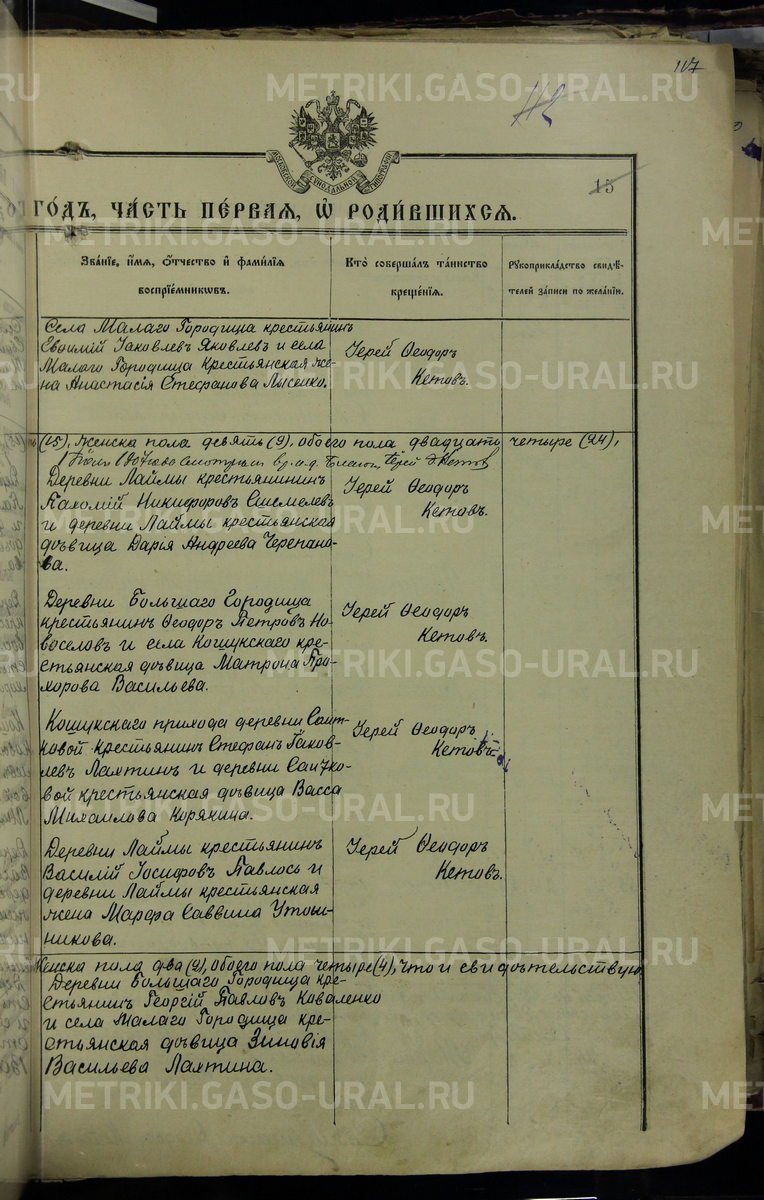 117
15
МОСКОВСКОЙ СѴНОДАЛЬНОЙ ТИПОГРАФІИ
ГО́ДЪ, ЧА́СТЬ ПЕ́РВАЯ, Ѡ҆ РОДИ́ВШИХСѦ.
Зва́нїе, и҆́мѧ, ѻ҆́тчество и҆ фами́лїѧ воспрїе́мникѡвъ.
Кто̀ соверша́лъ та́инство креще́нїѧ.
Рꙋкоприкла́дство свидѣ́телей за́писи по жела́нїю.
Села Малаго Городища крестьянинъ
Евѳимій Іаковлевъ Яковлевъ и села
Малаго Городища Крестьянская же-
на Анастасія Стефанова Лысенко.
Іерей Ѳеодоръ
Кетовъ.
(15), женска пола девять (9), обоего пола двадцать четыре (24),
Деревни Лаймы крестьянинъ
Пахомій Никифоровъ
и деревни Лаймы крестьянская
дѣвица Дарія Андреева Черепано-
ва.
Іерей Ѳеодоръ
Кетовъ.
Деревни Большаго Городища
крестьянинъ Ѳеодоръ Петровъ Но-
воселовъ и села Кошукскаго кре-
стьянская дѣвица Матрона Про-
хорова Васильева.
Іерей Ѳеодоръ
Кетовъ.
Кошукскаго прихода деревни Саит-
ковой крестьянинъ Стефанъ Іаков-
левъ Лахтинъ и деревни Саитко-
вой крестьянская дѣвица Васса
Михаилова Корякина.
Іерей Ѳеодоръ
Кетовъ.
Деревни Лаймы крестьянинъ
Василій Іосифовъ Павлось и
деревни Лаймы крестьянская
жена Марфа Саввина Утош-
никова.
Іерей Ѳеодоръ
Кетовъ.
Женска пола два (2), обоего пола четыре (4), что и свидѣтельствую
Деревни Большаго Городища кре-
стьянинъ Георгій Павловъ Коваленко
и села Малаго Городища кре-
стьянская дѣвица Зиновія
Васильева Лахтина.
METRIKI.GASO-URAL.RU